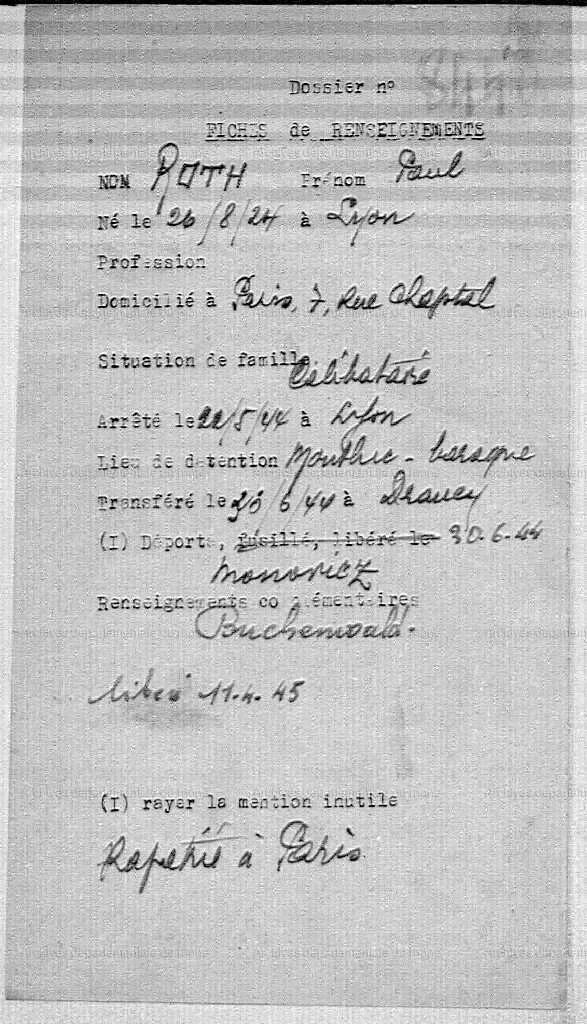 Dossier n°
FICHES de RENSEIGNEMENTS
NOM ROTH Prénom Paul
Né le 26/8/24 à Lyon
Profession
Domicilié à Paris, 7, Rue Chaptal
Situation de famille Célibataire
Arrêté le 22/5/44 à Lyon
Lieu de détention Montluc - baraque
Transféré le 23/6/44 à Drancy
(I) Déporté, fusillé, libéré le 30.6.44
Monovicz
Renseignements complémentaires
Buchenwald.
libéré 11.4.45
(I) rayer la mention inutile
Rapatrié à Paris